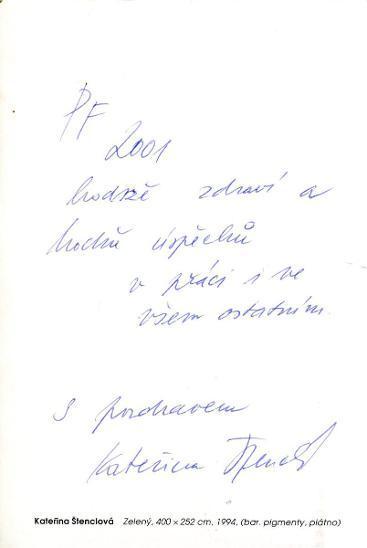 PF
2001
hodně zdraví a
hodně úspěchů
v práci i ve
všem ostatním
S pozdravem
Kateřina Štenclová
Kateřina Štenclová Zelený, 400 × 252 cm, 1994, (bar. pigmenty, plátno)